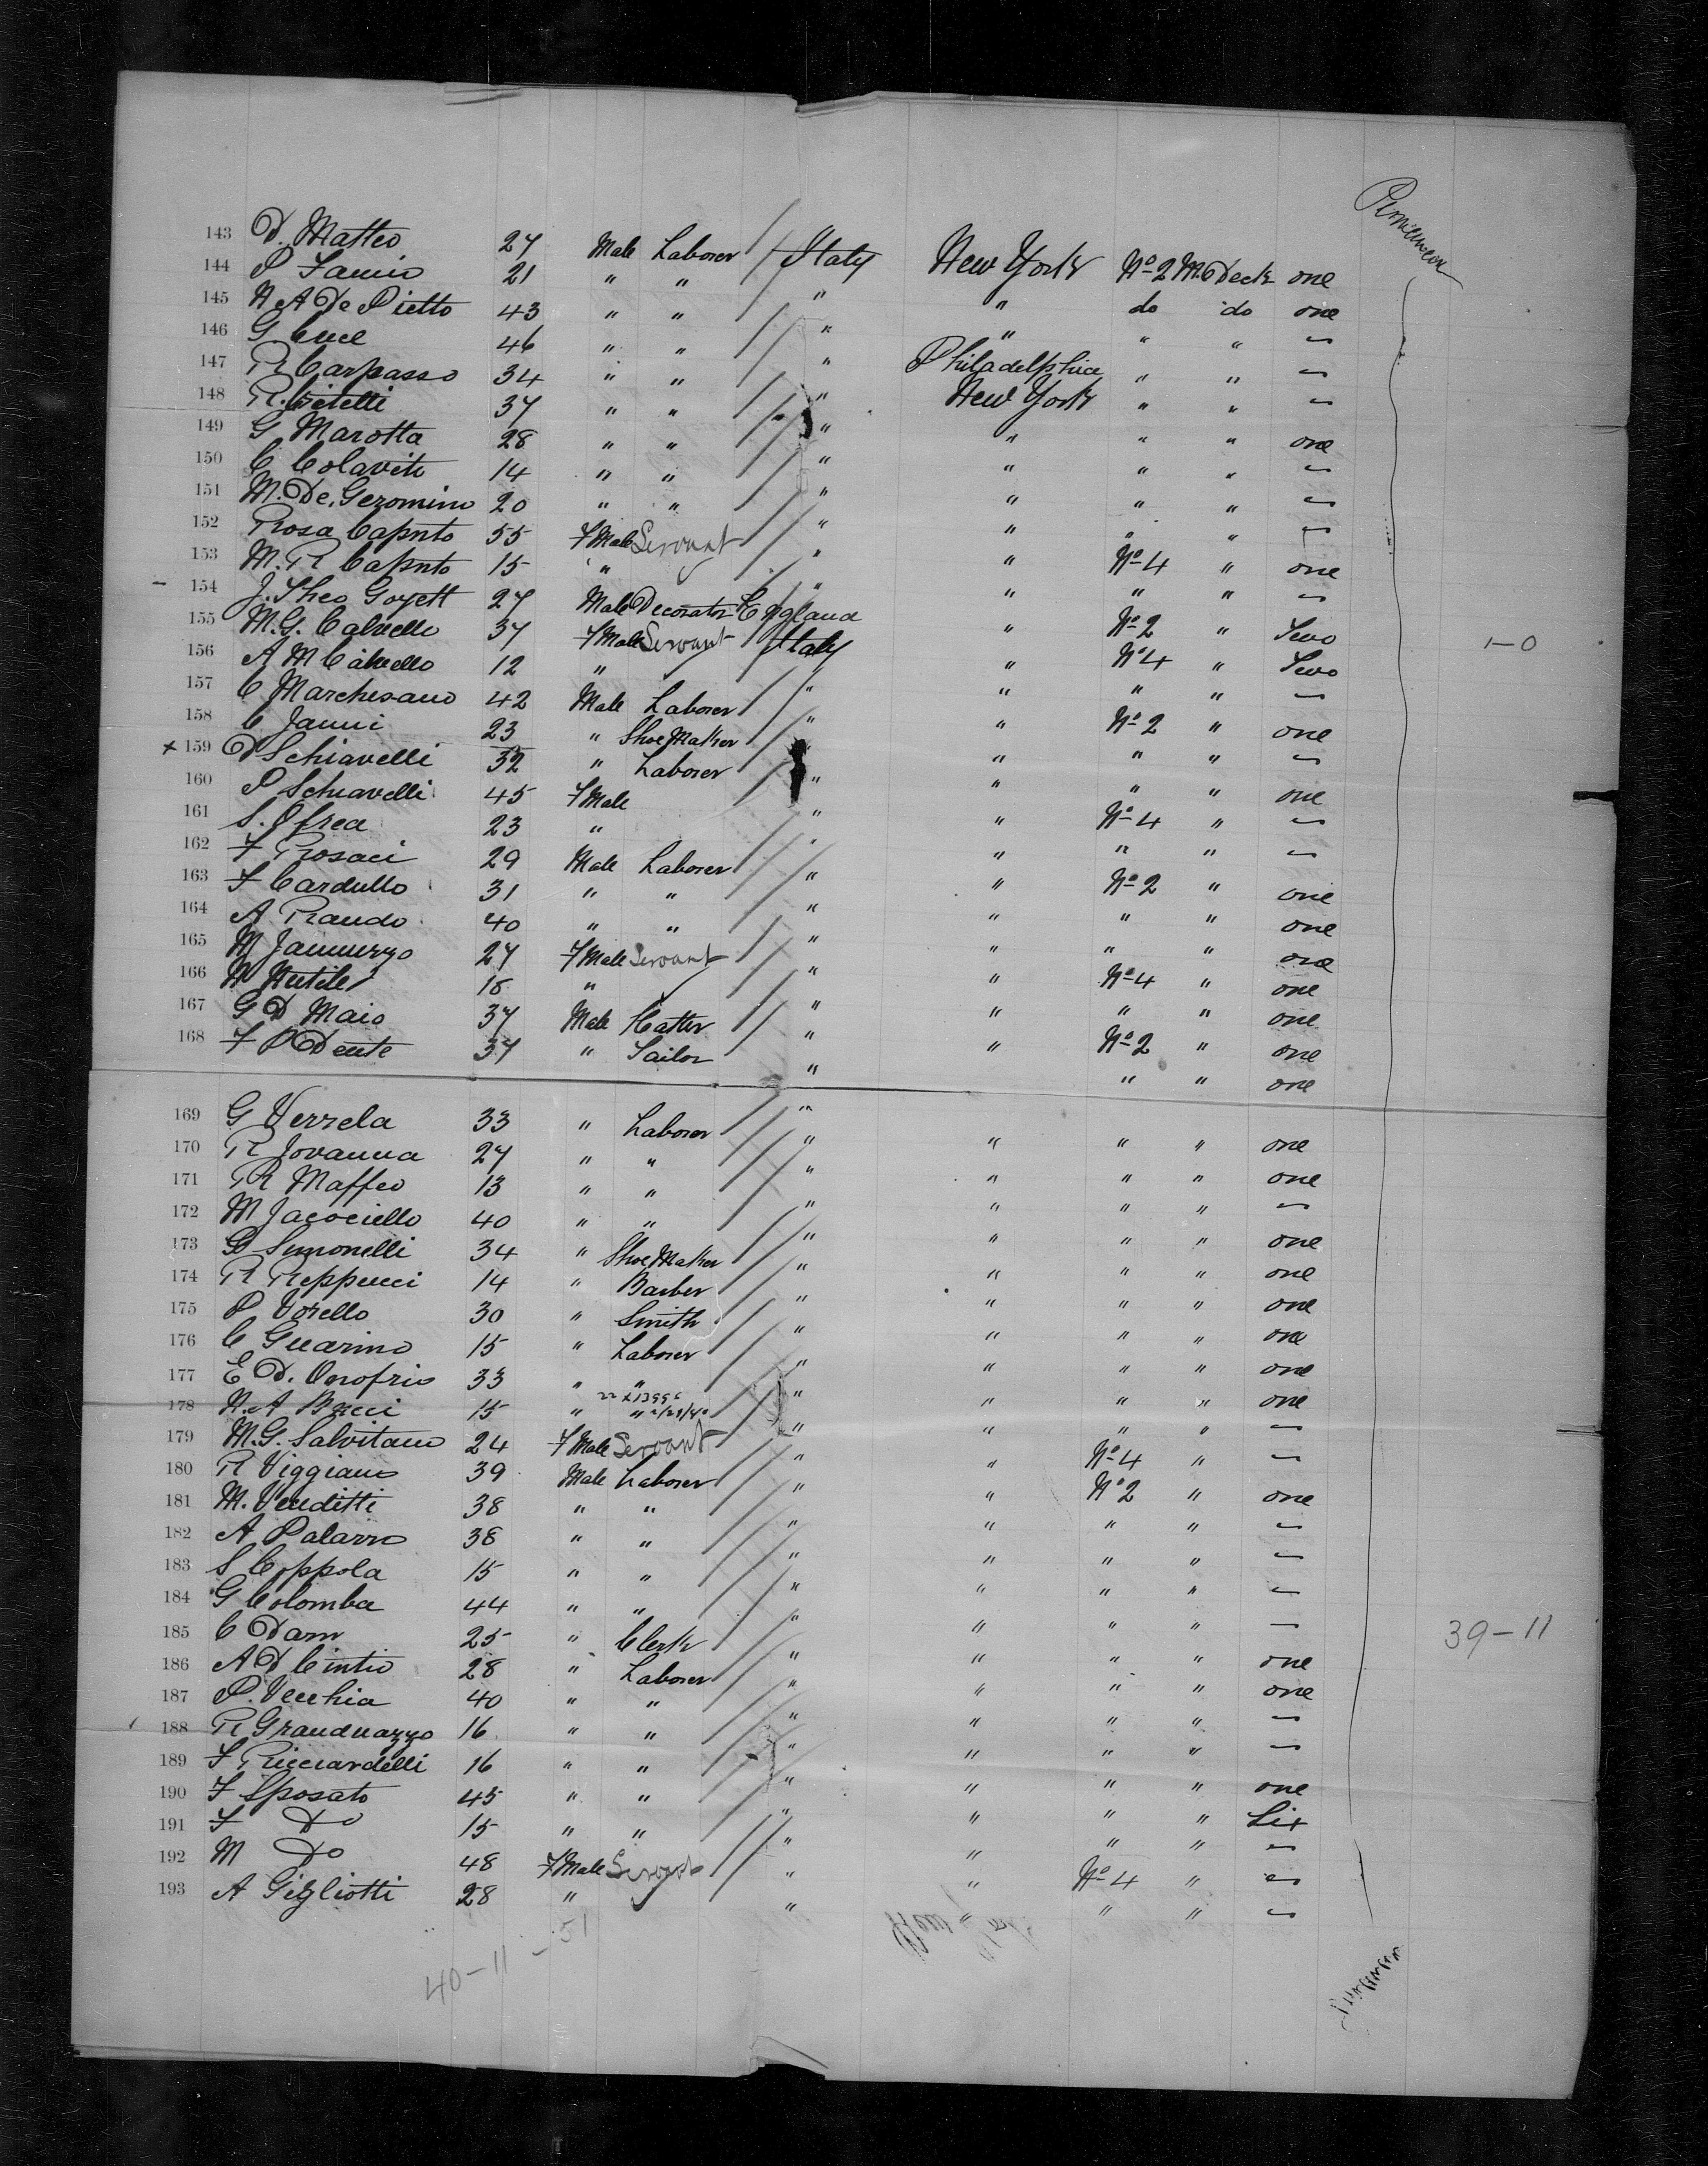 143 D. Matteo 27 Male Laborer Italy New York No 2 M. Deck one
144 P Iamio 21 " " " " do do one
145 N A De Pietto 43 " " " " " " -
146 G Cuce 46 " " " Philadelphia " " -
147 R Carpasso 34 " " " New York " " -
148 R. Vitelli 37 " " " " " " one
149 G Marotta 28 " " " " " " -
150 C Colavito 14 " " " " " " -
151 M. De. Geromino 20 " " " " " " -
152 Rosa Caputo 55 F Male Servant " " No 4 " one
153 M. R Caputo 15 " " " " " -
154 J. Theo Goyett 27 Male Decorator England " No 2 " Two
155 M. G. Calvello 37 F Male Servant Italy " No 4 " Two
156 A M Calvello 12 " " " " " -
157 C Marchesano 42 Male Laborer " " No 2 " one
158 C Janni 23 " Shoe Maker " " " " -
x 159 D Schiavelli 32 " Laborer " " " " one
160 P Schiavelli 45 F Male " " No 4 " -
161 S. Ofrea 23 " " " " " -
162 F Rosaci 29 Male Laborer " " No 2 " one
163 F Cardullo 31 " " " " " " one
164 A Prando 40 " " " " " " one
165 M Jannuzzo 27 F Male Servant " " No 4 " one
166 N Nutile 18 " " " " " one
167 G D Maio 37 Male Hatter " " No 2 " one
168 F P Dente 37 " Tailor " " " one
169 G Verrela 33 " Laborer " " " " one
170 R Jovanna 27 " " " " " " one
171 R Maffeo 13 " " " " " " -
172 M Jacociello 40 " " " " " " one
173 G Simonelli 34 " Shoe Maker " " " " one
174 R Reppucci 14 " Barber " " " " one
175 P Vorello 30 " Smith " " " " one
176 C Guarino 15 " Laborer " " " " one
177 E D. Onofrio 33 " " " " " " one
22 X 1399
178 N. A Bucci 15 " " " " " " -
179 M. G. Salvitano 24 F Male Servant " " No 4 " -
180 R Viggiano 39 Male Laborer " " No 2 " one
181 M. Venditti 38 " " " " " " -
182 A Palazzo 38 " " " " " " -
183 S Coppola 15 " " " " " " -
184 G Colomba 44 " " " " " " -
185 C Dam 25 " Clerk " " " " one
186 A D Cintio 28 " Laborer " " " " one
187 P. Vecchia 40 " " " " " " -
188 R Granduazzo 16 " " " " " " -
189 F Ricciardelli 16 " " " " " " one
190 F Sposato 45 " " " " " " Six
191 F Do 15 " " " " " " -
192 M Do 48 F Male Servant " " No 4 " -
193 A Gigliotti 28 " " " " " -
1-0
39-11
40-11-51